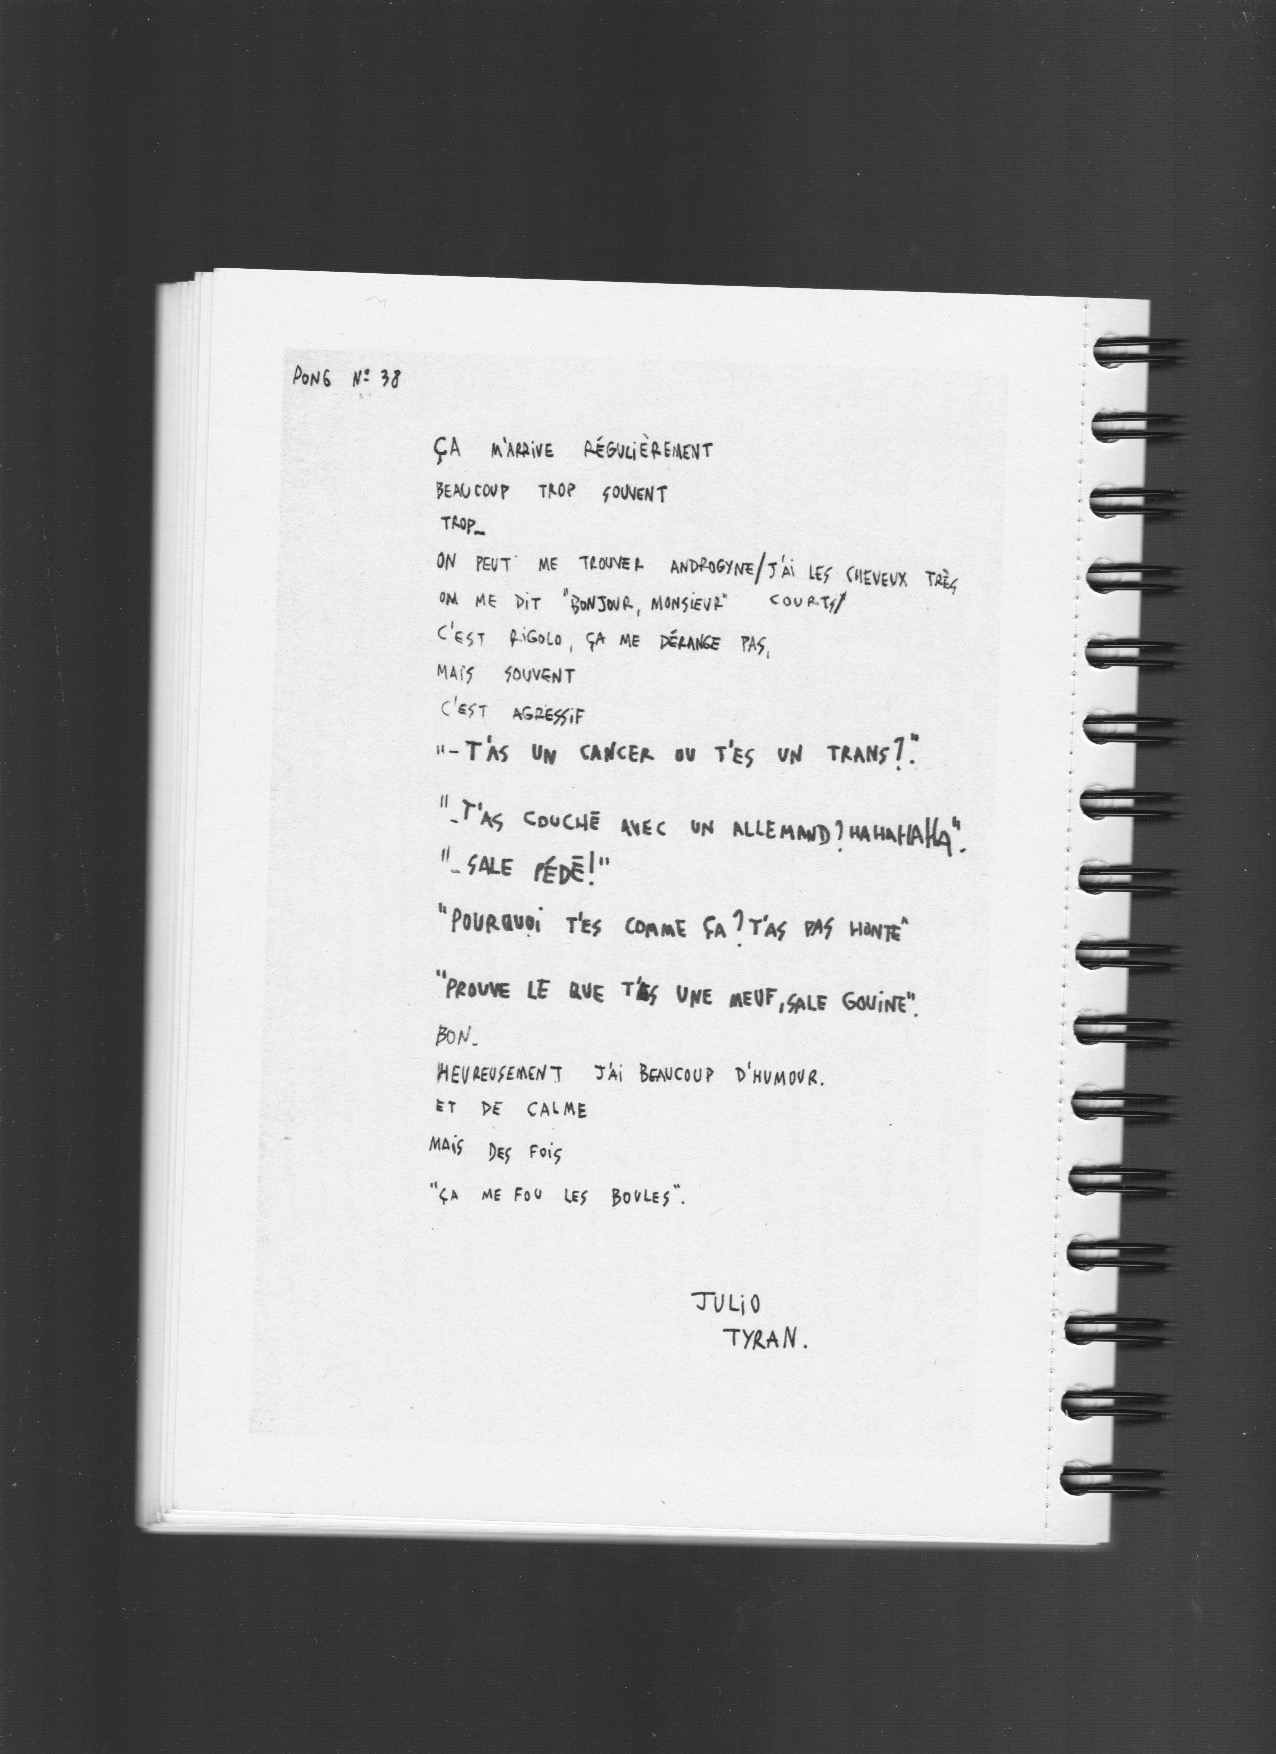 PONG N° 38
ÇA M'ARRIVE RÉGULIÈREMENT
BEAUCOUP TROP SOUVENT
TROP_
ON PEUT ME TROUVER ANDROGYNE/J'AI LES CHEVEUX TRÈS
ON ME DIT "BONJOUR, MONSIEUR" COURTS/
C'EST RIGOLO, ÇA ME DÉRANGE PAS,
MAIS SOUVENT
C'EST AGRESSIF
"_ T'AS UN CANCER OU T'ES UN TRANS?".
"_T'AS COUCHÉ AVEC UN ALLEMAND? HAHAHAHA".
"_ SALE PÉDÉ!"
"POURQUOI T'ES COMME ÇA? T'AS PAS HONTE"
"PROUVE LE QUE T'ES UNE MEUF, SALE GOUINE".
BON_
HEUREUSEMENT J'AI BEAUCOUP D'HUMOUR.
ET DE CALME
MAIS DES FOIS
"ÇA ME FOU LES BOULES".
JULIO
TYRAN.